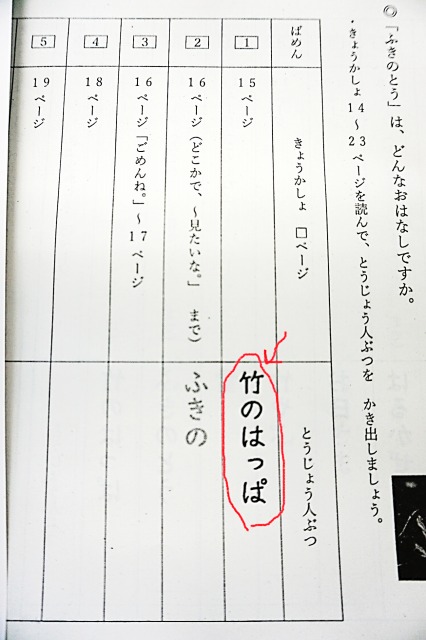 ◎「ふきのとう」は、どんなおはなしですか。
・きょうかしょ 14～23ページを読んで、とうじょう人ぶつを かき出しましょう。
ばめん
きょうかしょ □ページ
とうじょう人ぶつ
1
15ページ
竹のはっぱ
2
16ページ(どこかで、～見たいな。」 まで)
ふきの
3
16ページ「ごめんね。」～17ページ
4
18ページ
5
19ページ